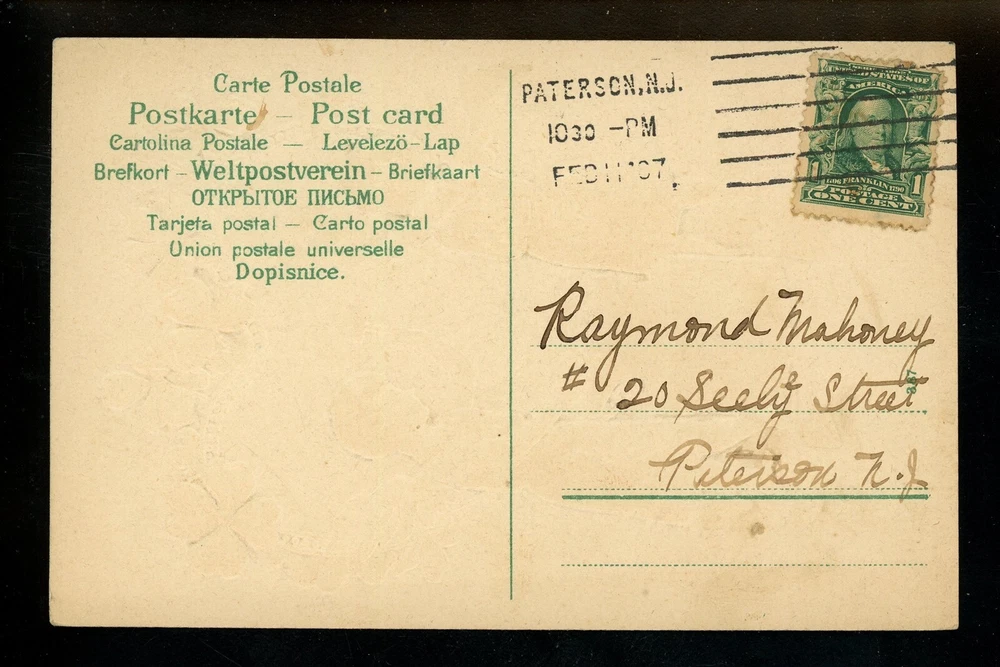 Carte Postale
Postkarte – Post card
Cartolina Postale — Levelezö-Lap
Brefkort – Weltpostverein – Briefkaart
ОТКРЫТОЕ ПИСЬМО
Tarjeta postal — Carto postal
Union postale universelle
Dopisnice.
PATERSON, N.J.
1030 -PM
FEB 11 '07
UNITED STATES OF
AMERICA
1 1
FRANKLIN 1790
POSTAGE
ONE CENT
Raymond Mahoney
# 20 Seely Street
Peterson N.J